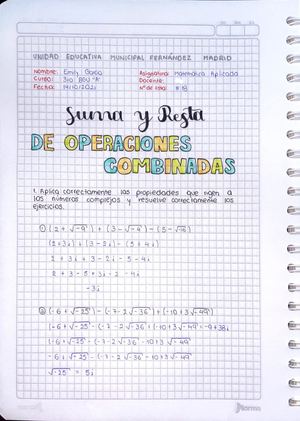 UNIDAD EDUCATIVA MUNICIPAL FERNÁNDEZ MADRID
Nombre: Emily García Asignatura: Matemática Aplicada
Curso: 3ro BGU "A" Docente:
Fecha: 14/10/2021 N° de lista: # 18
Suma y Resta
DE OPERACIONES
COMBINADAS
1. Aplica correctamente las propiedades que rigen a
los números complejos y resuelve correctamente los
ejercicios.
① (2 + √-9) + (3 - √-4) - (5 - √-16)
(2+3i) + (3-2i) - (5+4i)
2 + 3i + 3 - 2i - 5 - 4i
2 + 3 - 5 + 3i - 2 - 4i
-3i
② (-6 + √-25) - (-7 - 2√-36) + (-10 + 3√-49)
(-6 + √-25 - (-7 - 2√-36 + (-10 + 3√-49 = -9+38i
(-6 + √-25 - (-7 - 2√-36 - 10 + 3√-49
-6 + √-25 - (-7 - 2√-36 - 10 + 3√-49
√-25 = 5i
Norma